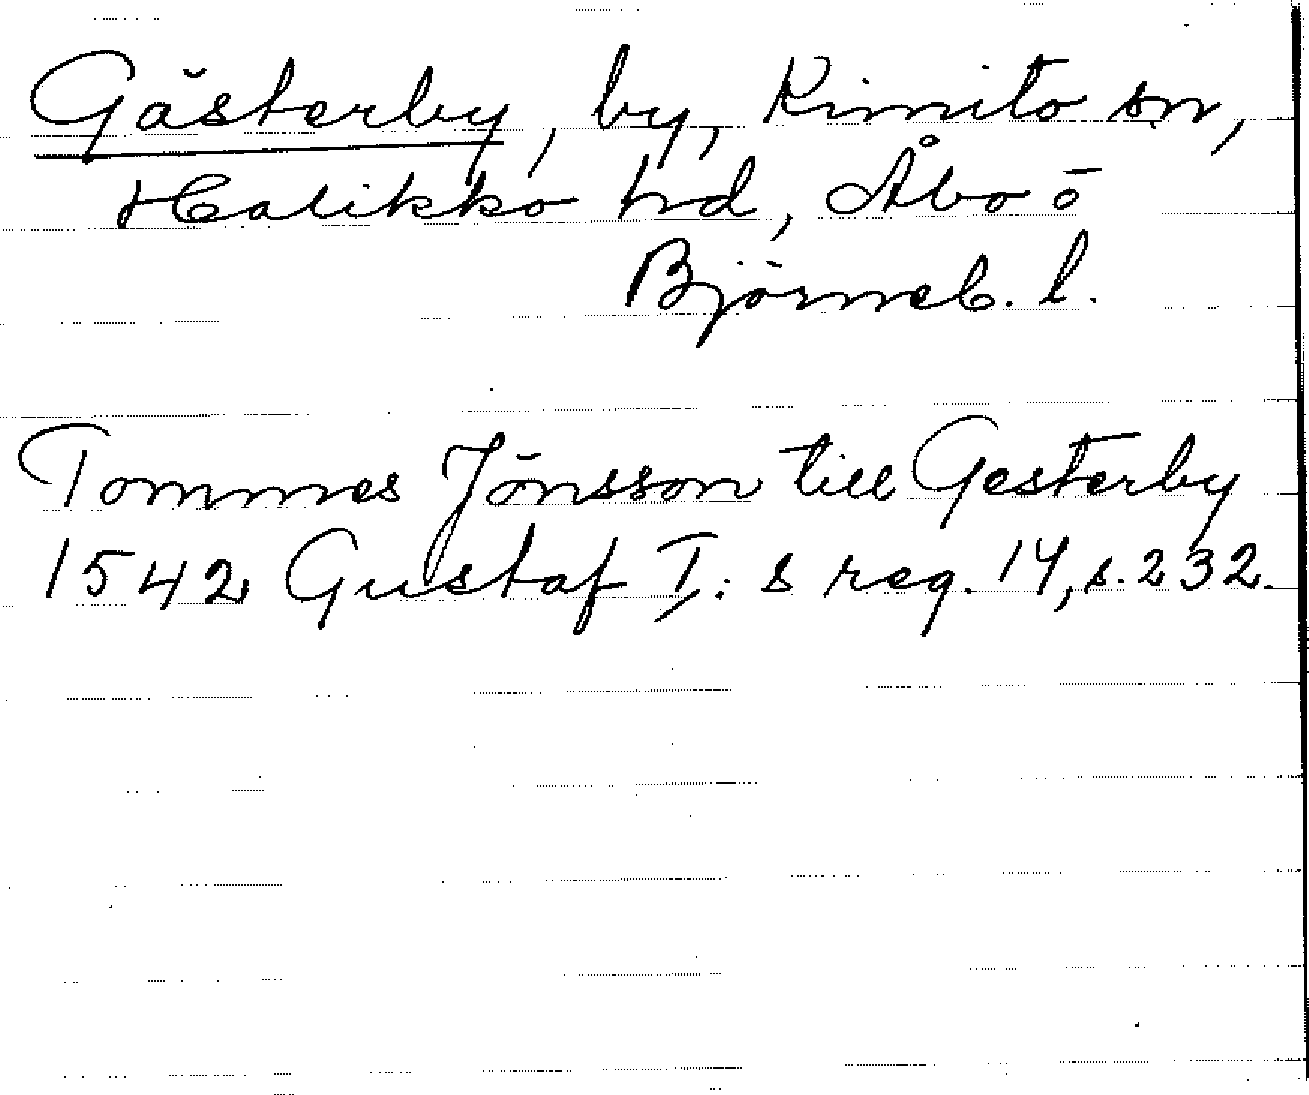 Gästerby, by, Kimito sn,
Halikko hd, Åbo ö
Björneb. l.
Tommes Jönsson till Gesterby
1542 Gustaf I: s reg. 14, s. 232.